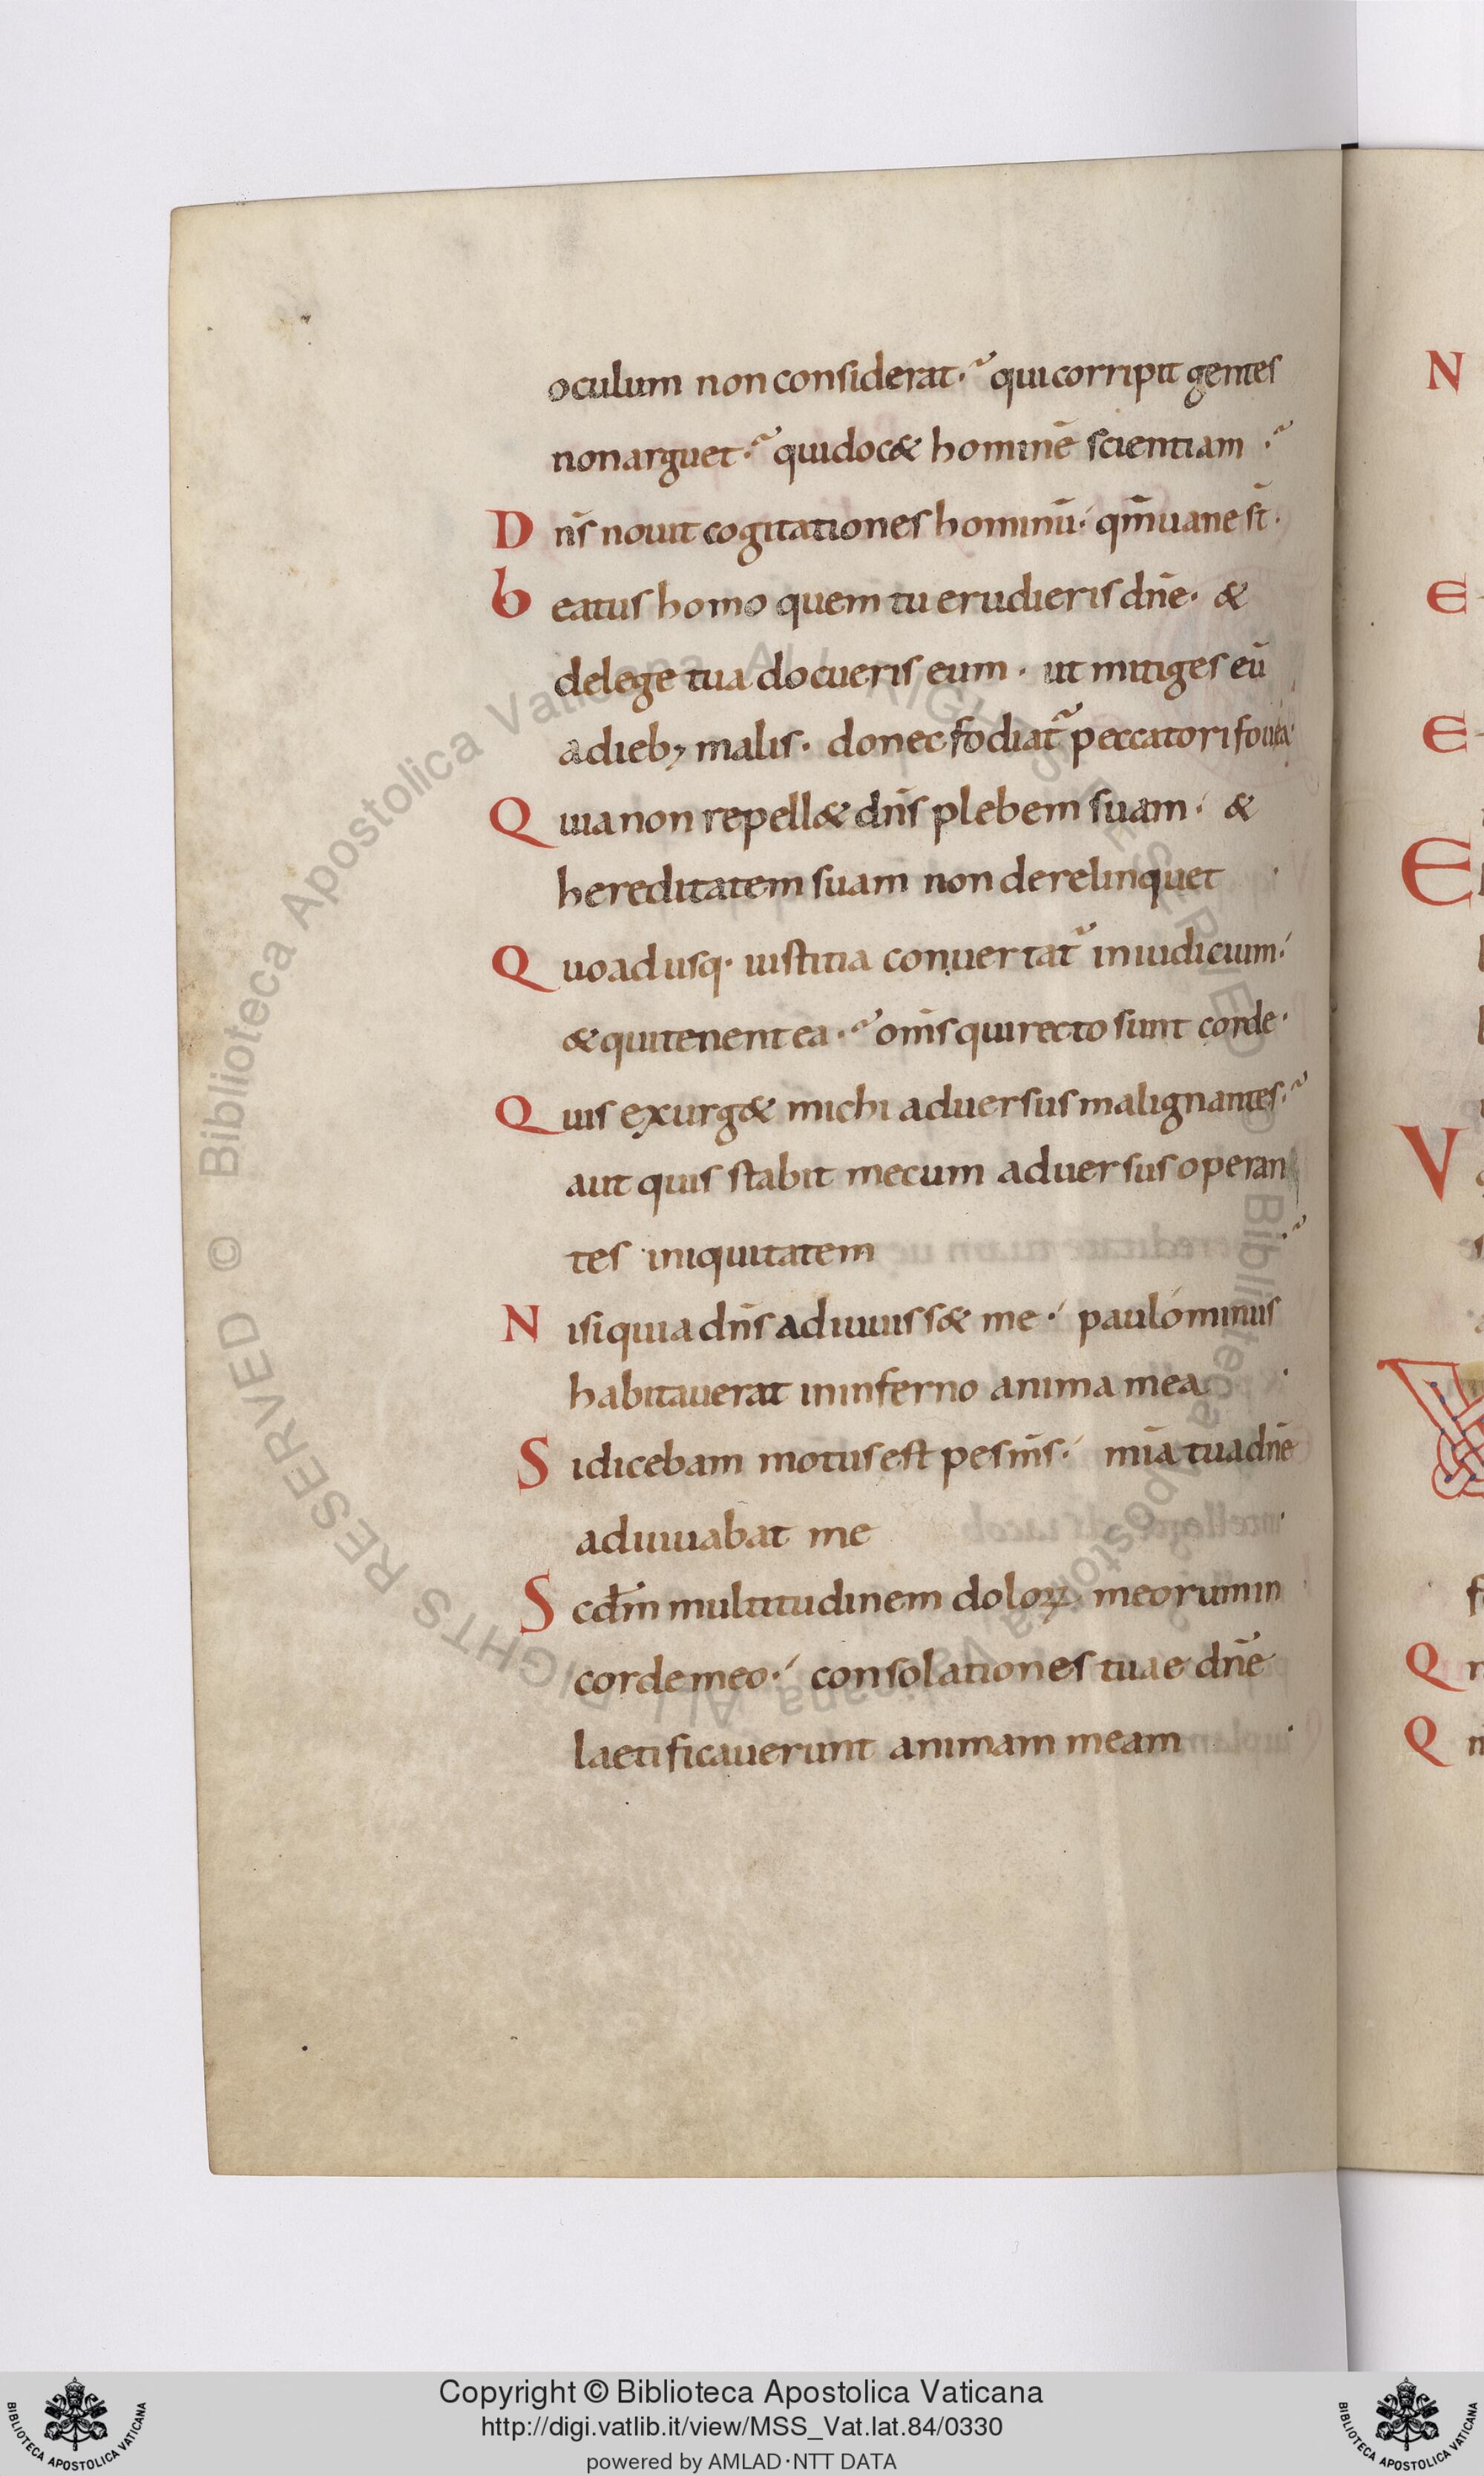 oculum non considerat· qui corripit gentes
non arguet· qui doc& hominē scientiam ·
Dn̄s nouit cogitationes hominū· qm̄ uane st̄·
beatus homo quem tu erudieris dn̄e· &
de lege tua docueris eum · ut mitiges eū
a dieb; malis · donec fodiat᷑ peccatori fouea·
Quia non repell& dn̄s plebem suam · &
hereditatem suam non derelinquet ·
Quo ad usq· iustitia conuertat᷑ in iudicium·
& qui tenent ea · om̄s qui recto sunt corde·
Quis exurg& michi aduersus malignantes·
aut quis stabit mecum aduersus operan
tes iniquitatem ·
Nisi quia dn̄s adiuuiss& me · paulominus
habitauerat in inferno anima mea ·
Si dicebam motus est pes m̄s · mīa tua dn̄e
adiuuabat me ·
Scdm̄ multitudinem doloꝝ meorum in
corde meo · consolationes tuae dn̄e
laetificauerunt animam meam ·
N
E
E
E
V
Q
Q
Copyright © Biblioteca Apostolica Vaticana
http://digi.vatlib.it/view/MSS_Vat.lat.84/0330
powered by AMLAD·NTT DATA
BIBLIOTECA APOSTOLICA VATICANA
BIBLIOTECA APOSTOLICA VATICANA
Biblioteca Apostolica Vaticana ALL RIGHTS RESERVED ©
Biblioteca Apostolica Vaticana ALL RIGHTS RESERVED ©